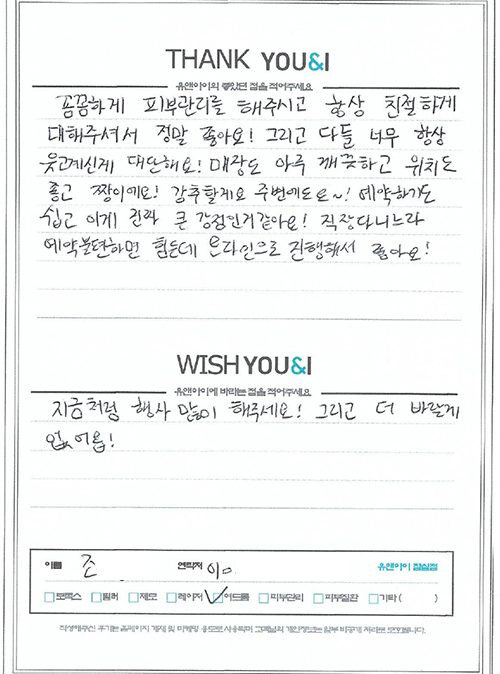 THANK YOU&I
유앤아이의 좋았던 점을 적어주세요
꼼꼼하게 피부관리를 해주시고 항상 친절하게
대해주셔서 정말 좋아요! 그리고 다들 너무 항상
웃고계신게 대단해요! 매장도 아주 깨끗하고 위치도
좋고 짱이에요! 강추할게요 주변에도요~! 예약하기도
쉽고 이게 진짜 큰 강점인거같아요! 직장다니느라
예약불편하면 힘든데 온라인으로 진행해서 좋아요!
WISH YOU&I
유앤아이에 바라는 점을 적어주세요
지금처럼 행사 많이 해주세요! 그리고 더 바랄게
없어욥!
이름 조 연락처 010 유앤아이 잠실점
보톡스 필러 제모 레이저 여드름 피부관리 피부질환 기타 ( )
작성해주신 후기는 홈페이지 게재 및 마케팅 용도로 사용되며 고객님의 개인정보는 일부 비공개 처리로 보호됩니다.